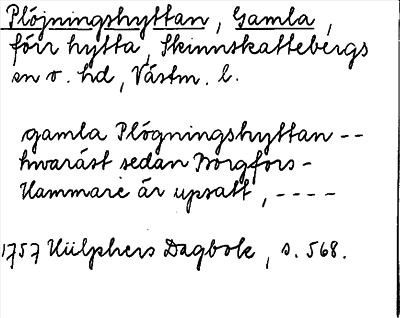 Plöjningshyttan, Gamla,
förr hytta, Skinnskattebergs
sn o. hd, Västm. l.
gamla Plögningshyttan --
hwaräst sedan Borgfors-
Hammare är upsatt, ----
1757 Hülphers Dagbok, s. 568.